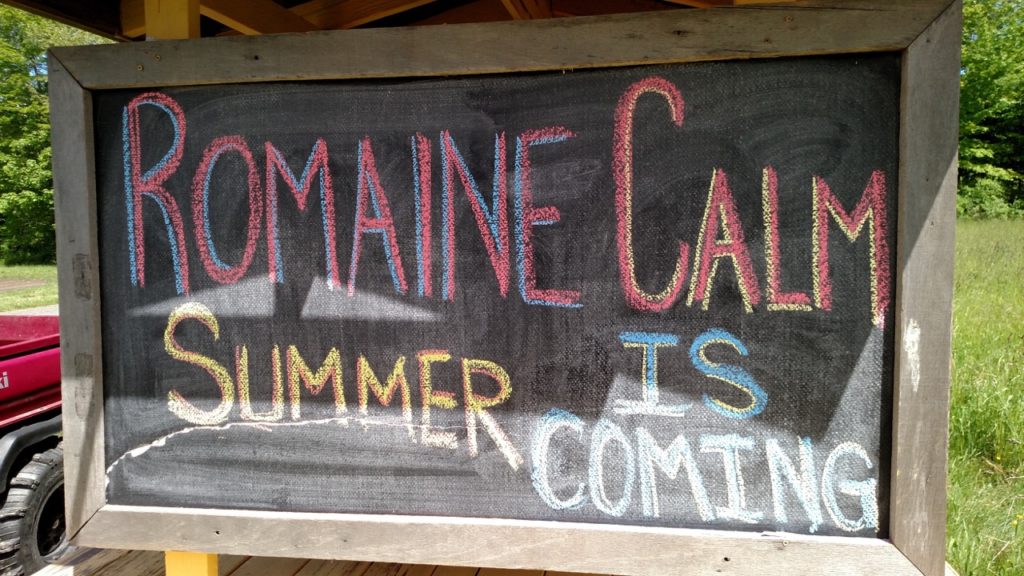 ROMAINE CALM
SUMMER IS
COMING
ki